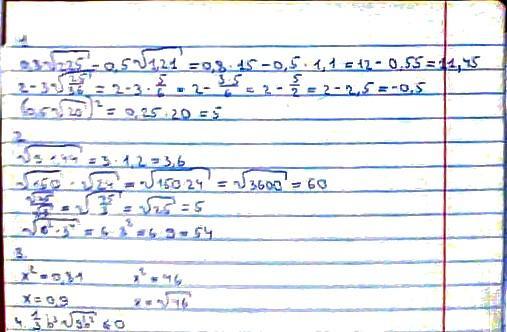 1
0,8√225 - 0,5√1,21 = 0,8 · 15 - 0,5 · 1,1 = 12 - 0,55 = 11,45
2 - 3√25/36 = 2 - 3 · 5/6 = 2 - 3·5/6 = 2 - 5/2 = 2 - 2,5 = -0,5
(0,5√20)² = 0,25 · 20 = 5
2
= 3 · 1,2 = 3,6
√150 · √24 = √150·24 = √3600 = 60
= √25 = 5
= 6 · 3² = 6 · 9 = 54
3.
x² = 0,81 x² = 46
x = 0,9 x = √46
4. 1/3 b²